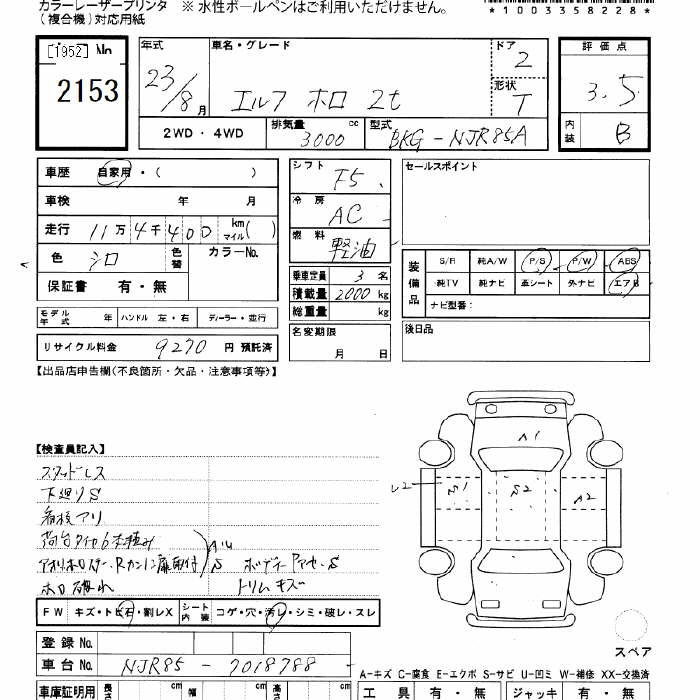 カラーレーザープリンタ ※ 水性ボールペンはご利用いただけません。
(複合機)対応用紙
*1003358228*
[1952] No
2153
年式
23/8 月
車名・グレード
エルフ ホロ 2t
ドア
2
形状
T
2WD・4WD
排気量
3000 cc
型式
BKG-NJR85A
評価点
3.5
内装
B
車歴 自家用・( )
車検 年 月
走行 11万4千400 km マイル( )
色 シロ 色替 カラーNo.
保証書 有・無
シフト F5
冷房 AC
燃料 軽油
乗車定員 3 名
積載量 2000 kg
総重量 kg
セールスポイント
装備品
S/R 純A/W P/S P/W ABS
純TV 純ナビ 革シート 外ナビ エアB
ナビ型番:
モデル年式 年 ハンドル 左・右 ディーラー・並行
リサイクル料金 9270 円 預託済
名変期限
月 日
後日品
【出品店申告欄(不良箇所・欠品・注意事項等)】
【検査員記入】
スタッドレス
下廻りS
看板アリ
荷台タイヤ6本積み
ボディーアセ、S
ホロ破れ
トリムキズ
A1
S1
S2
A2
FW キズ・トビ石・割レX シート内装 コゲ・穴・汚レ・シミ・破レ・スレ
スペア
登録No.
車台No. NJR85-7018788
A-キズ C-腐食 E-エクボ S-サビ U-凹ミ W-補修 XX-交換済
車庫証明用 長さ cm 幅 cm 高さ cm
工具 有・無 ジャッキ 有・無